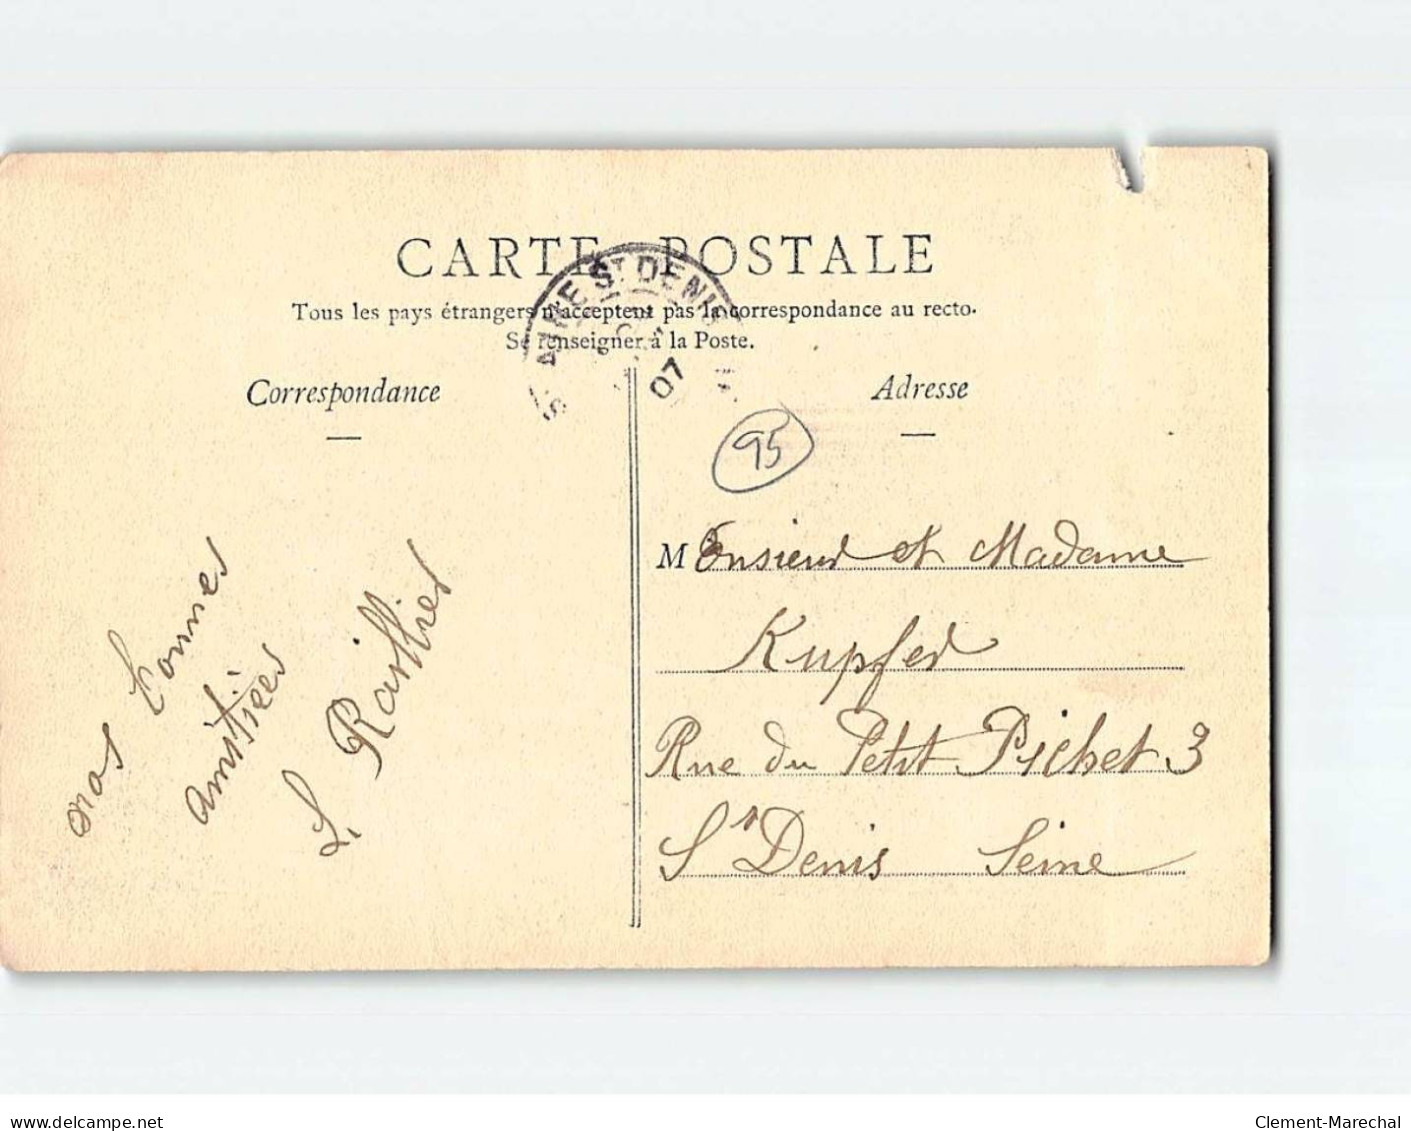 CARTE POSTALE
Tous les pays étrangers n'acceptent pas la correspondance au recto.
Se renseigner à la Poste.
ST DENIS
07
Correspondance
Adresse
95
nos bonnes
amitiées
L. Raillier
Monsieur et Madame
Kupfer
Rue du Petit Pichet 3
St Denis Seine
delcampe.net
Clement-Marechal